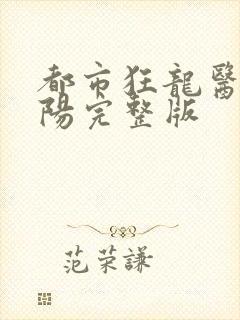 都市狂龍醫
陽完整版
范荣謙